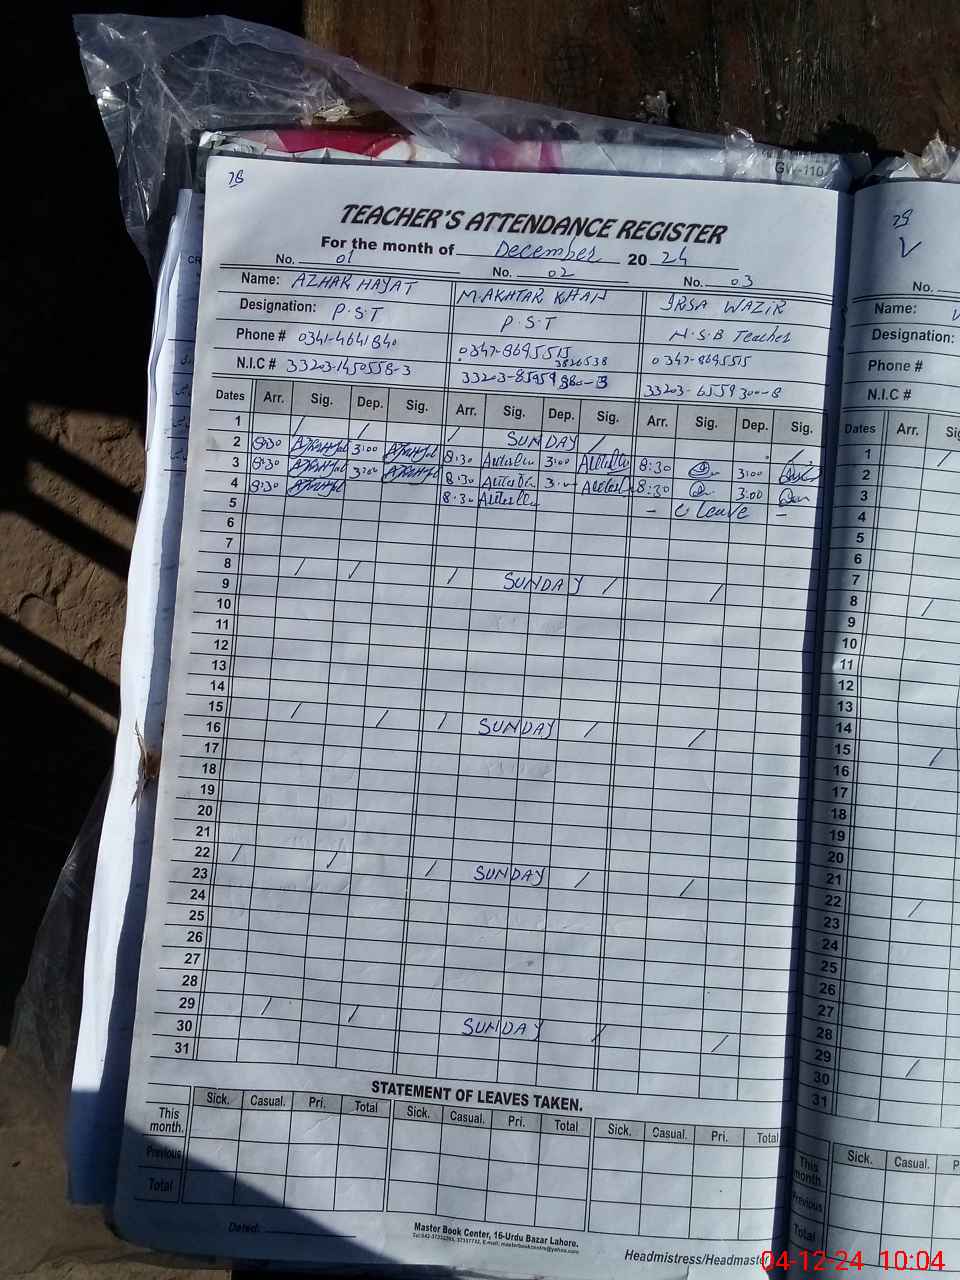 GW-110
78
TEACHER'S ATTENDANCE REGISTER
For the month of December 2024
No. 01 No. 02 No. 03
Name: AZHAR HAYAT M.AKHTAR KHAN IRSA WAZIR
Designation: P.S.T P.S.T N.S.B Teacher
Phone # 0341-4641840 0347-8695515 0347-8695515
3826538
N.I.C # 33203-1450558-3 33203-6559300-8
Dates Arr. Sig. Dep. Sig. Arr. Sig. Dep. Sig. Arr. Sig. Dep. Sig.
1 / / / SUNDAY /
2 8:30 3:00 8:30 3:00 8:30 3:00
3 8:30 3:00 8:30 3:00 8:30 3:00
4 8:30 8:30 - C leave -
5
6
7
8 / / / SUNDAY / /
9
10
11
12
13
14
15 / / / SUNDAY / /
16
17
18
19
20
21
22 / / / SUNDAY / /
23
24
25
26
27
28
29 / / SUNDAY / /
30
31
STATEMENT OF LEAVES TAKEN.
Sick. Casual. Pri. Total Sick. Casual. Pri. Total Sick. Casual. Pri. Total
This month.
Previous
Total
Dated:
Master Book Center, 16-Urdu Bazar Lahore.
Headmistress/Headmaster
No.
Name:
Designation:
Phone #
N.I.C #
Dates Arr.
1 /
2
3
4
5
6
7
8 /
9
10
11
12
13
14
15 /
16
17
18
19
20
21
22 /
23
24
25
26
27
28
29 /
30
31
Sick. Casual.
This month.
Previous
Total
04-12-24 10:04